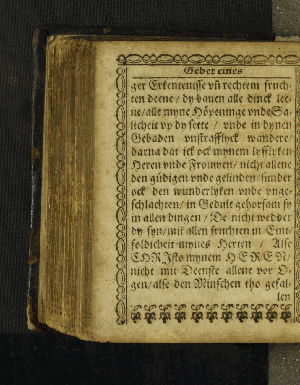 Gebet eines
ger Erkentenisse vñ rechtem fruch-
ten deene / dy bauen alle dinck lee-
ue / alle myne Höpeninge vnde Sa-
licheit vp dy sette / vnde in dynen
Gebaden vnstrafflyck wandere /
darna dat ick ock mynem lyfflyken
Heren vnde Frouwen / nicht allene
den güdigen vnde gelinden / sünder
ock den wunderlyken vnde vnge-
schlachten / in Gedult gehorsam sy
in allen dingen / De nicht wedder
dy syn / mit allen fruchten in Eint-
foldicheit mynes Herten / Alse
CHRIsto mynem HEREN /
nicht mit Deenste allene vor O-
gen / alse den Minschen tho gefal-
len